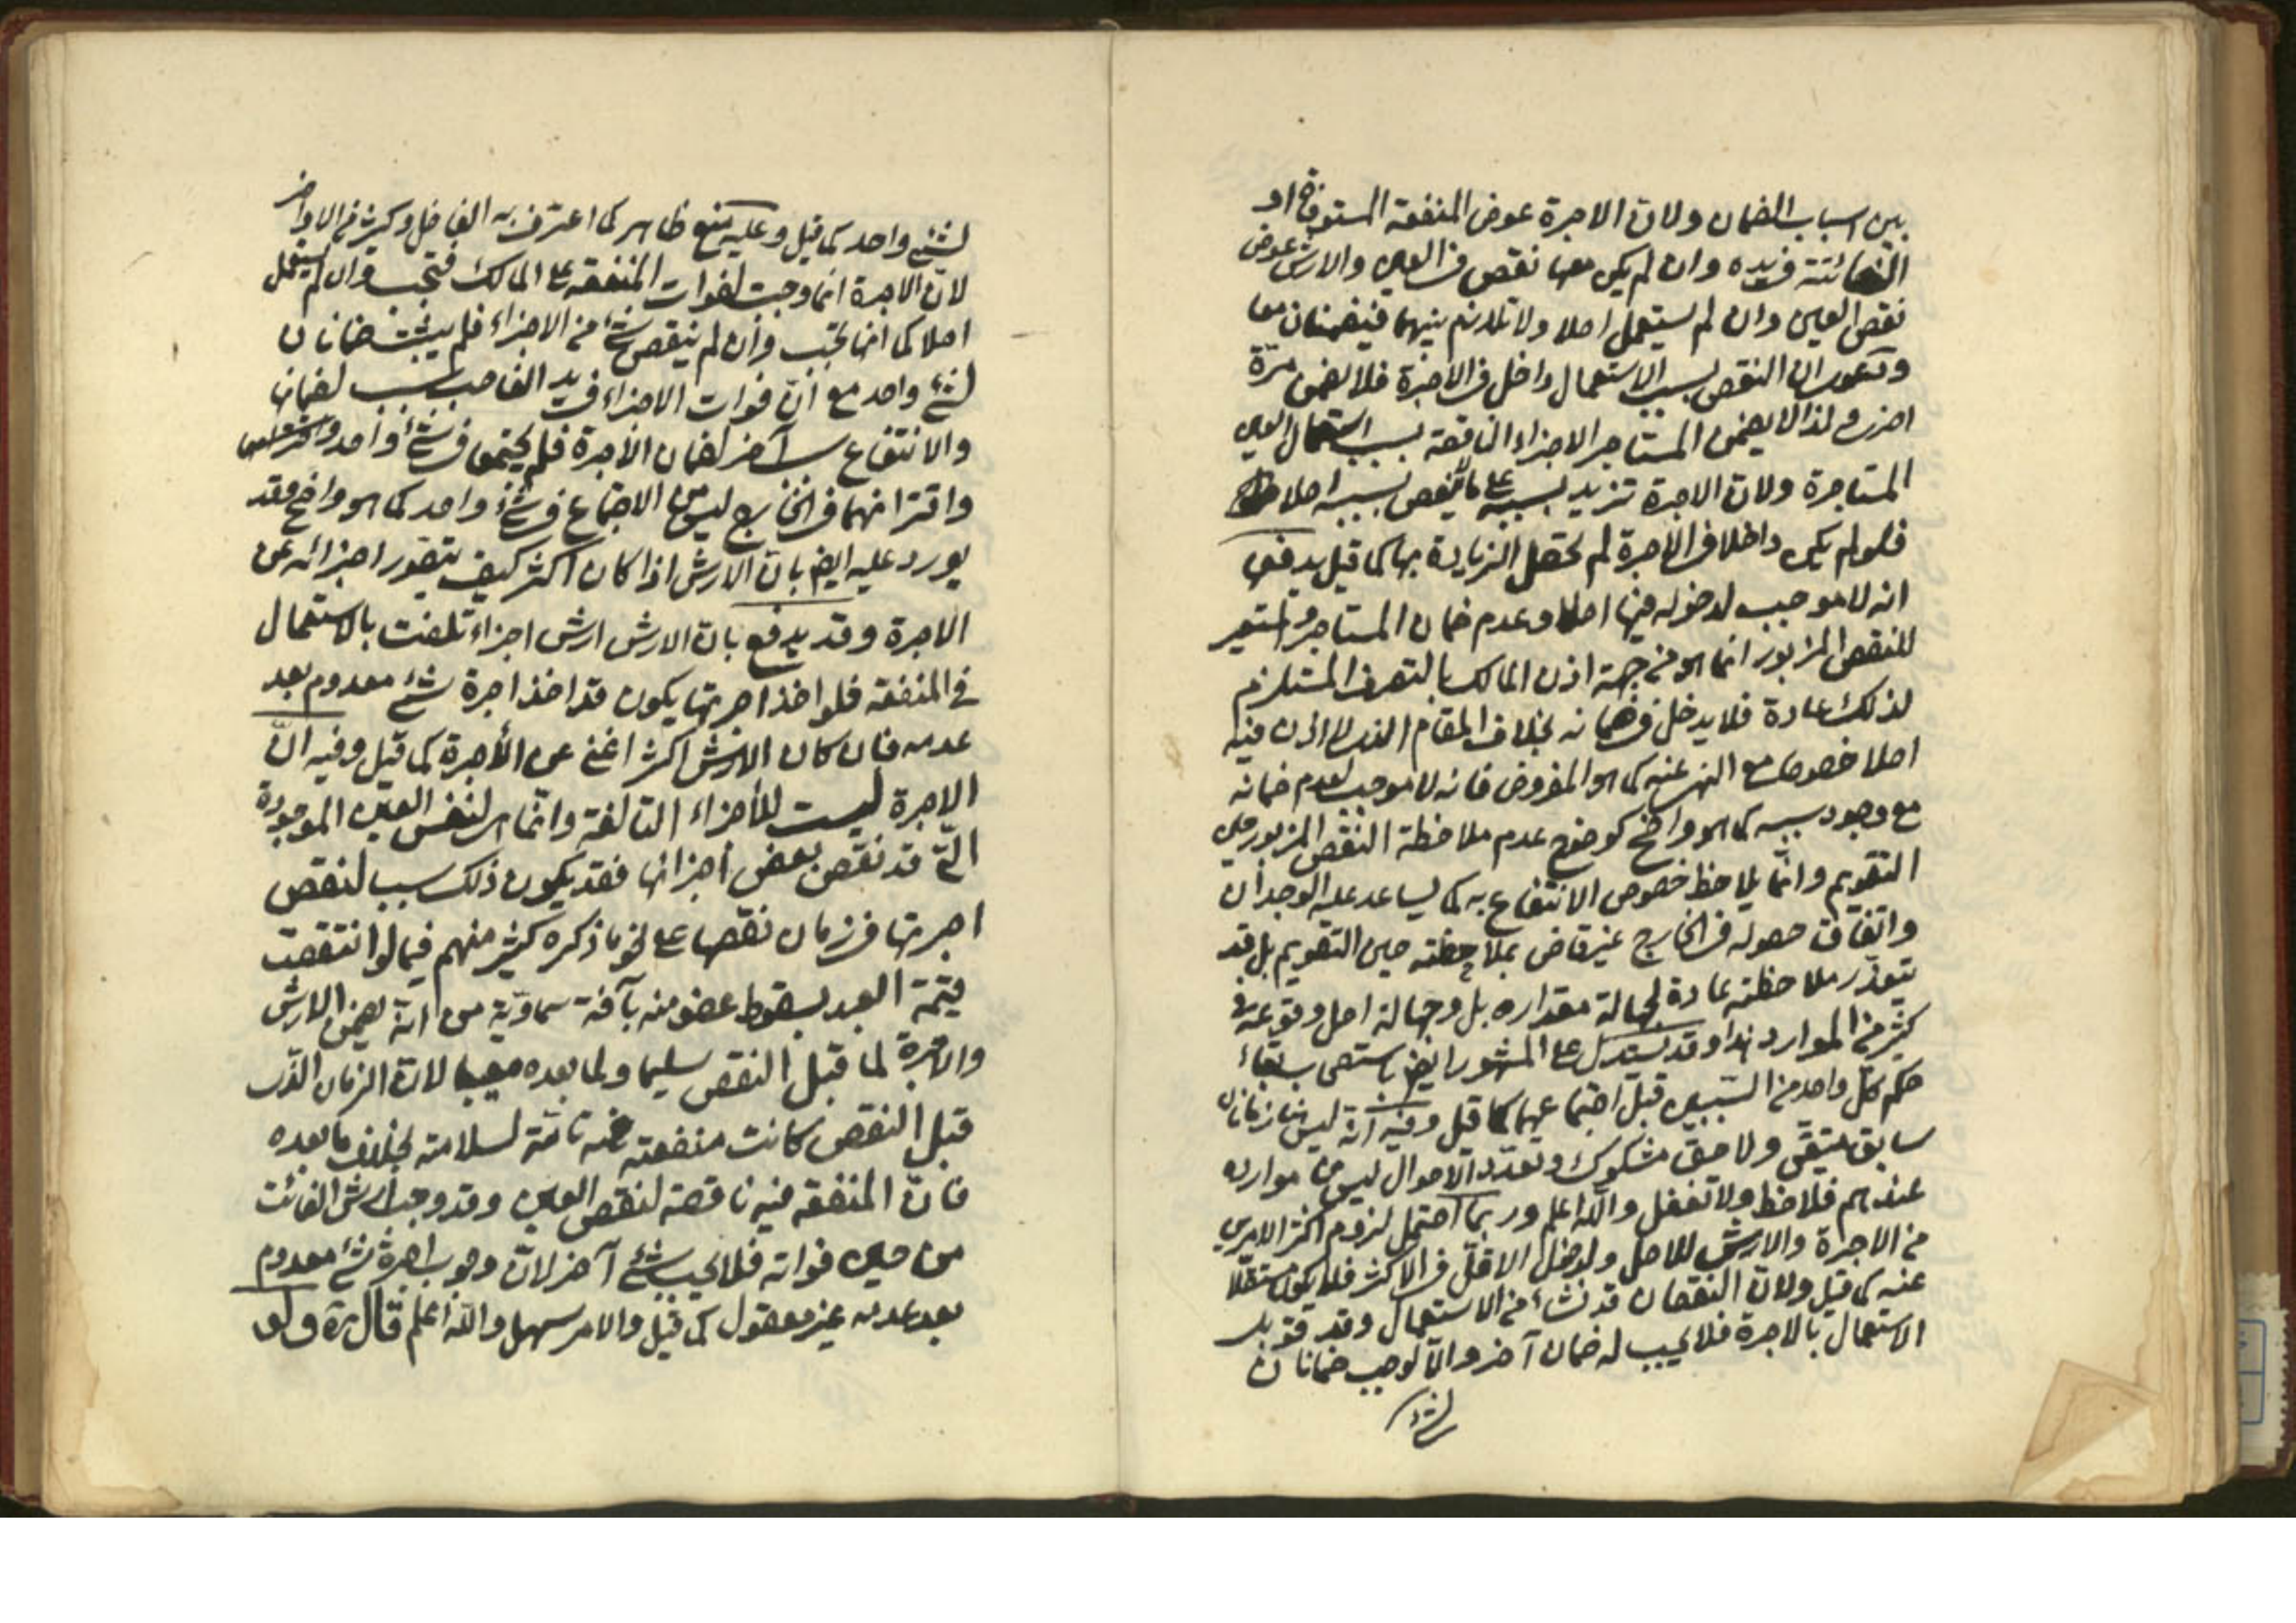 بين اسباب الضمان ولان الاجرة عوض المنفعة المستوفاة او
الفائتة في يده وان لم يكن معها نقص في العين والارش عوض
نقص العين وان لم يستعمل اصلا ولا تلازم بينهما فيضمنان معا
ودعوى ان النقص بسبب الاستعمال داخل في الاجرة فلا يضمن مرة
اخرى ولذا لا يضمن المستاجر الاجزاء الناقصة بسبب استعمال العين
المستاجرة ولان الاجرة تزيد بسببه على ما لا ينقص بسببه اصلا
فلو لم يكن داخلا في الاجرة لم تحصل الزيادة بها كما قيل يدفعها
انه لا موجب لدخوله فيها اصلا وعدم ضمان المستاجر والمستعير
للنقص المزبور انما هو من جهة اذن المالك بالتصرف المستلزم
لذلك عادة فلا يدخل في ضمانه بخلاف المقام الذي لا اذن فيه
اصلا خصوصا مع النهى عنه كما هو المفروض فانه لا موجب لعدم ضمانه
مع وجود سببه كما هو واضح كوضوح عدم ملاحظة النقص المزبور حين
التقويم وانما يلاحظ خصوص الانتفاع به كما يساعد عليه الوجدان
واتفاق حصوله في الخارج غير قاض بملاحظته حين التقويم بل قد
تتعذر ملاحظته عادة لجهالة مقداره بل وجهالة اصل وقوعه في
كثير من الموارد هذا وقد يستدل على المشهور ايضا باستصحاب بقاء
حكم كل واحد من السببين قبل اجتماعهما كما قيل وفيه انه ليس هنا زمانان
سابق متيقن ولاحق مشكوك وتعدد الاحوال ليس من موارده
عندهم فلاحظ ولا تغفل والله اعلم وربما احتمل لزوم اكثر الامرين
من الاجرة والارش للاصل ولدخول الاقل في الاكثر فلا يكون مستقلا
عنه كما قيل ولان النقصان قد نشاء من الاستعمال وقد قوبل
الاستعمال بالاجرة فلا يجب له ضمان آخر والا لوجب ضمانان
لشئ
لشئ واحد كما قيل وعليه منع ظاهر كما اعترف به الفاضل وكثير من الاواخر
لان الاجرة انما وجبت لفوات المنفعة على المالك فتجب وان لم يستعمل
اصلا كما انها تجب وان لم ينقص شئ من الاجزاء فلم يثبت ضمانان
لشئ واحد مع ان فوات الاجزاء في يد الغاصب سبب لضمانها
والانتفاع سبب آخر لضمان الاجرة فلم يجتمعا في شئ واحد
واقترانهما في الخارج ليس من الاجتماع في شئ واحد كما هو واضح وقد
يورد عليه ايضا بان الارش اذا كان اكثر كيف يتصور اجزائه عن
الاجرة وقد يدفع بان الارش ارش اجزاء تلفت بالاستعمال
في المنفعة فلو اخذ اجرتها يكون قد اخذ اجرة شئ معدوم بعد
عدمه فان كان الارش اكثر اغنى عن الأجرة كما قيل وفيه انّ
الاجرة ليست للأجزاء التالفة وانّما هى لنفس العين الموجودة
التى قد نقص بعض أجزائها فقد يكون ذلك سببا لنقص
اجرتها في زمان نقصها على نحو ما ذكره كثير منهم فيما لو انتقصت
قيمة العبد بسقوط عضو منه بآفة سماويّة من انّه يضمن الارش
والاجرة لما قبل النقص سليما ولما بعده معيبا لان الزمان الذى
قبل النقص كانت منفعته فيه تامّة لسلامته بخلاف ما بعده
فانّ المنفعة فيه ناقصة لنقص العين وقد وجب ارش الفائت
من حين فواته فلا يجب شئ آخر لانّ وجوب اجرة شئ معدوم
بعد عدمه غير معقول كما قيل والامر سهل والله اعلم قال ره ولو